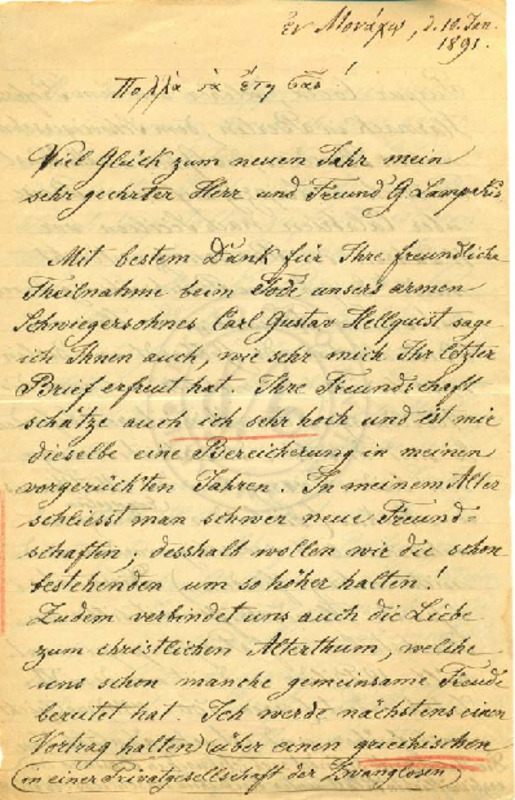 ἐν Μονάχῳ, d. 10. Jan.
1891.
Πολλὰ τὰ ἔτη σας!
Viel Glück zum neuen Jahr mein
sehr geehrter Herr und Freund G. Lampakis
Mit bestem Dank für Ihre freundliche
Theilnahme beim Tode unsers armen
Schwiegersohnes Carl Gustav Hellquist sage
ich Ihnen auch, wie sehr mich Ihr letzter
Brief erfreut hat. Ihre Freundschaft
schätze auch ich sehr hoch und ist mir
dieselbe eine Bereicherung in meinen
vorgerückten Jahren. In meinem Alter
schliesst man schwer neue Freund-
schaften; desshalb wollen wir die schon
bestehenden um so höher halten!
Zudem verbindet uns auch die Liebe
zum christlichen Alterthum, welche
uns schon manche gemeinsame Freude
bereitet hat. Ich werde nächstens einen
Vortrag halten über einen griechischen
(in einer Privatgesellschaft der Zwanglosen)